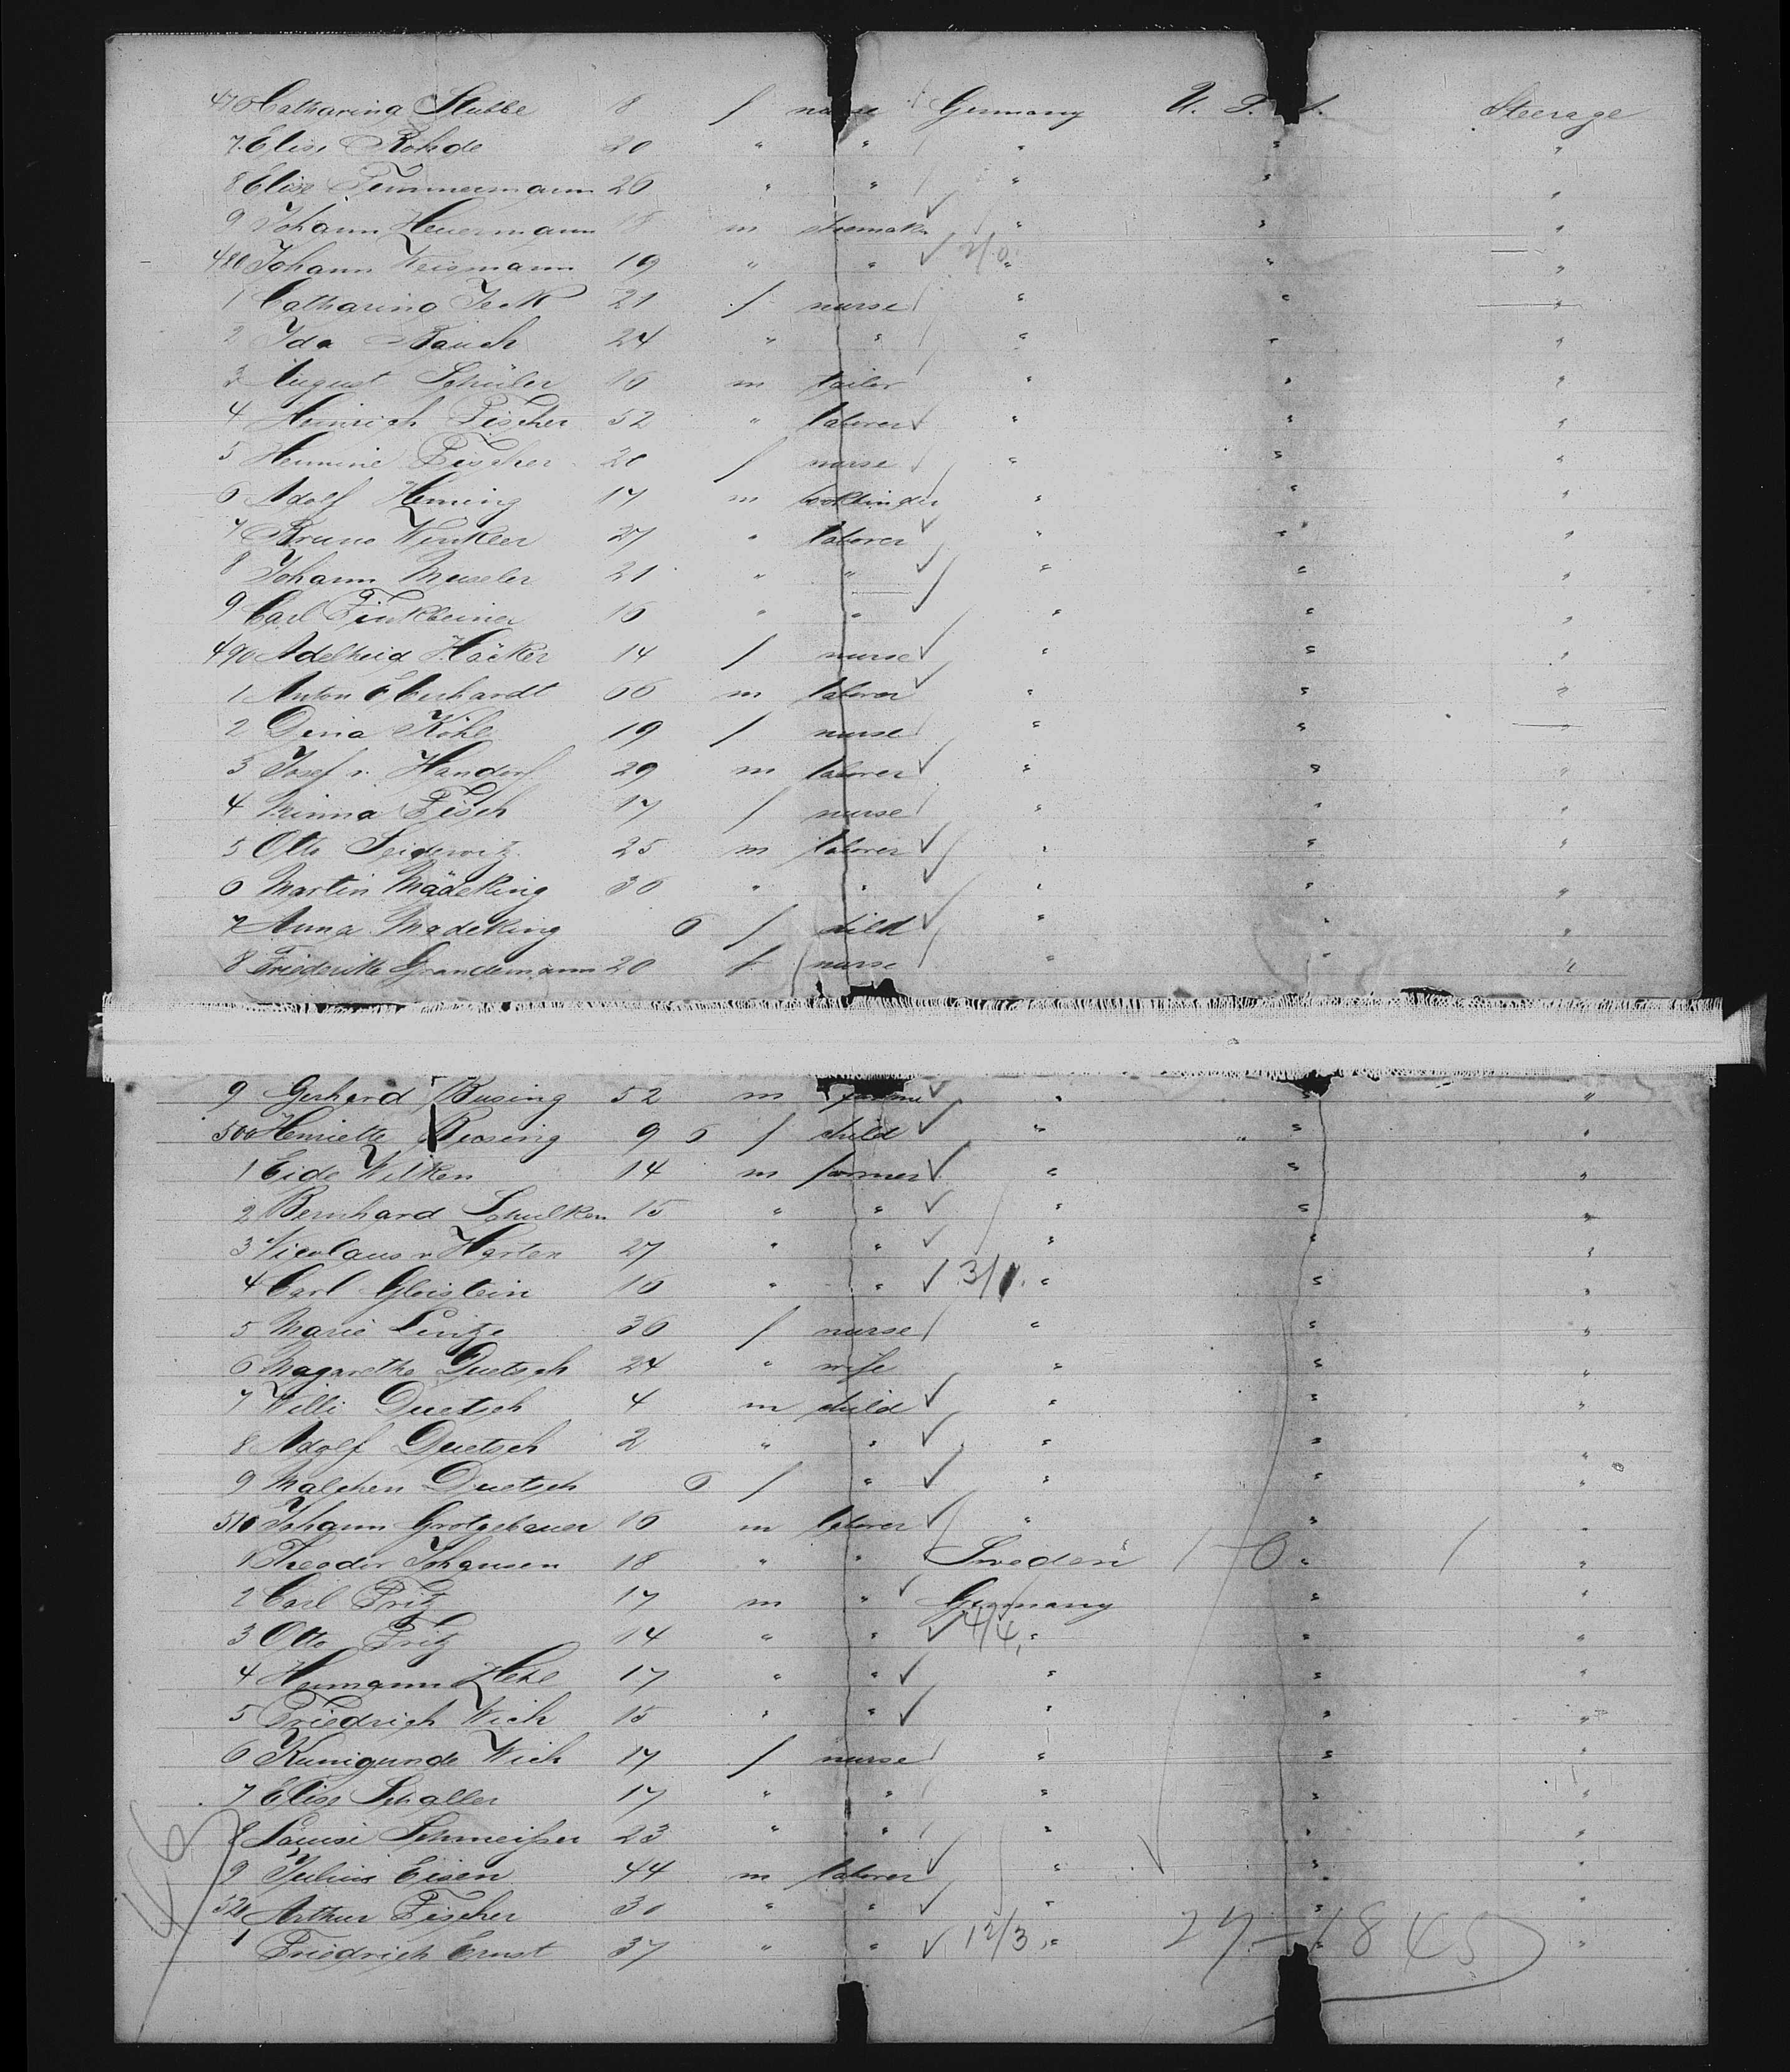 476 Catharina Stubbe 8 f nurse Germany U. S. A. Steerage
7 Elise Rohde 20 " " " " "
8 Elise Timmermann 26 " " " " "
9 Johann Heuermann 18 m shoemaker " " "
480 Johann Weismann 19 " " 2/0 " " "
1 Catharina Jeck 21 f nurse " " "
2 Ida Rauch 24 " " " " "
3 August Schüler 16 m tailor " " "
4 Heinrich Fischer 52 " laborer " " "
5 Hermine Fischer 20 f nurse " " "
6 Adolf Heming 17 m bookbinder " " "
7 Bruno Winkler 27 " laborer " " "
8 Johann Museler 21 " " " " "
9 Carl Finkbeiner 16 " " " " "
490 Adelheid Häcker 14 f nurse " " "
1 Anton Eberhardt 66 m laborer " " "
2 Dina Köhl 19 f nurse " " "
3 Josef v. Handorf 29 m laborer " " "
4 Minna Fisch 17 f nurse " " "
5 Otto Seidewitz 25 m laborer " " "
6 Martin Mädeking 36 " " " " "
7 Anna Madeking 6 f child " " "
8 Friederike Grandemann 20 f nurse " " "
9 Gerhard Busing 52 m farmer " " "
500 Henriette Busing 9 6 f child " " "
1 Eide Wilken 14 m farmer " " "
2 Bernhard Schulken 15 " " " " "
3 Nicolaus v. Harten 27 " " " " "
4 Carl Gleistein 16 " " 3/1. " " "
5 Marie Lintze 36 f nurse " " "
6 Magarethe Duetsch 24 " wife " " "
7 Willi Duetsch 4 m child " " "
8 Adolf Duetsch 2 " " " " "
9 Malchen Duetsch 6 f " " " "
510 Johann Grotgebauer 16 m laborer " " "
1 Theodor Johansen 18 " " Sweden 1 0 " 1 "
2 Carl Fritz 17 m " Germany " "
3 Otto Fritz 14 " " 4/4, " " "
4 Hermann Hehl 17 " " " " "
5 Friedrich Wich 15 " " " " "
6 Kunigunde Wich 17 f nurse " " "
7 Elise Schaller 17 " " " " "
8 Louise Schmeißer 23 " " " " "
9 Julius Eisen 44 m laborer " " "
520 Arthur Fischer 30 " " " " "
1 Friedrich Ernst 37 " " 12/3 " 27 - 18 45 "